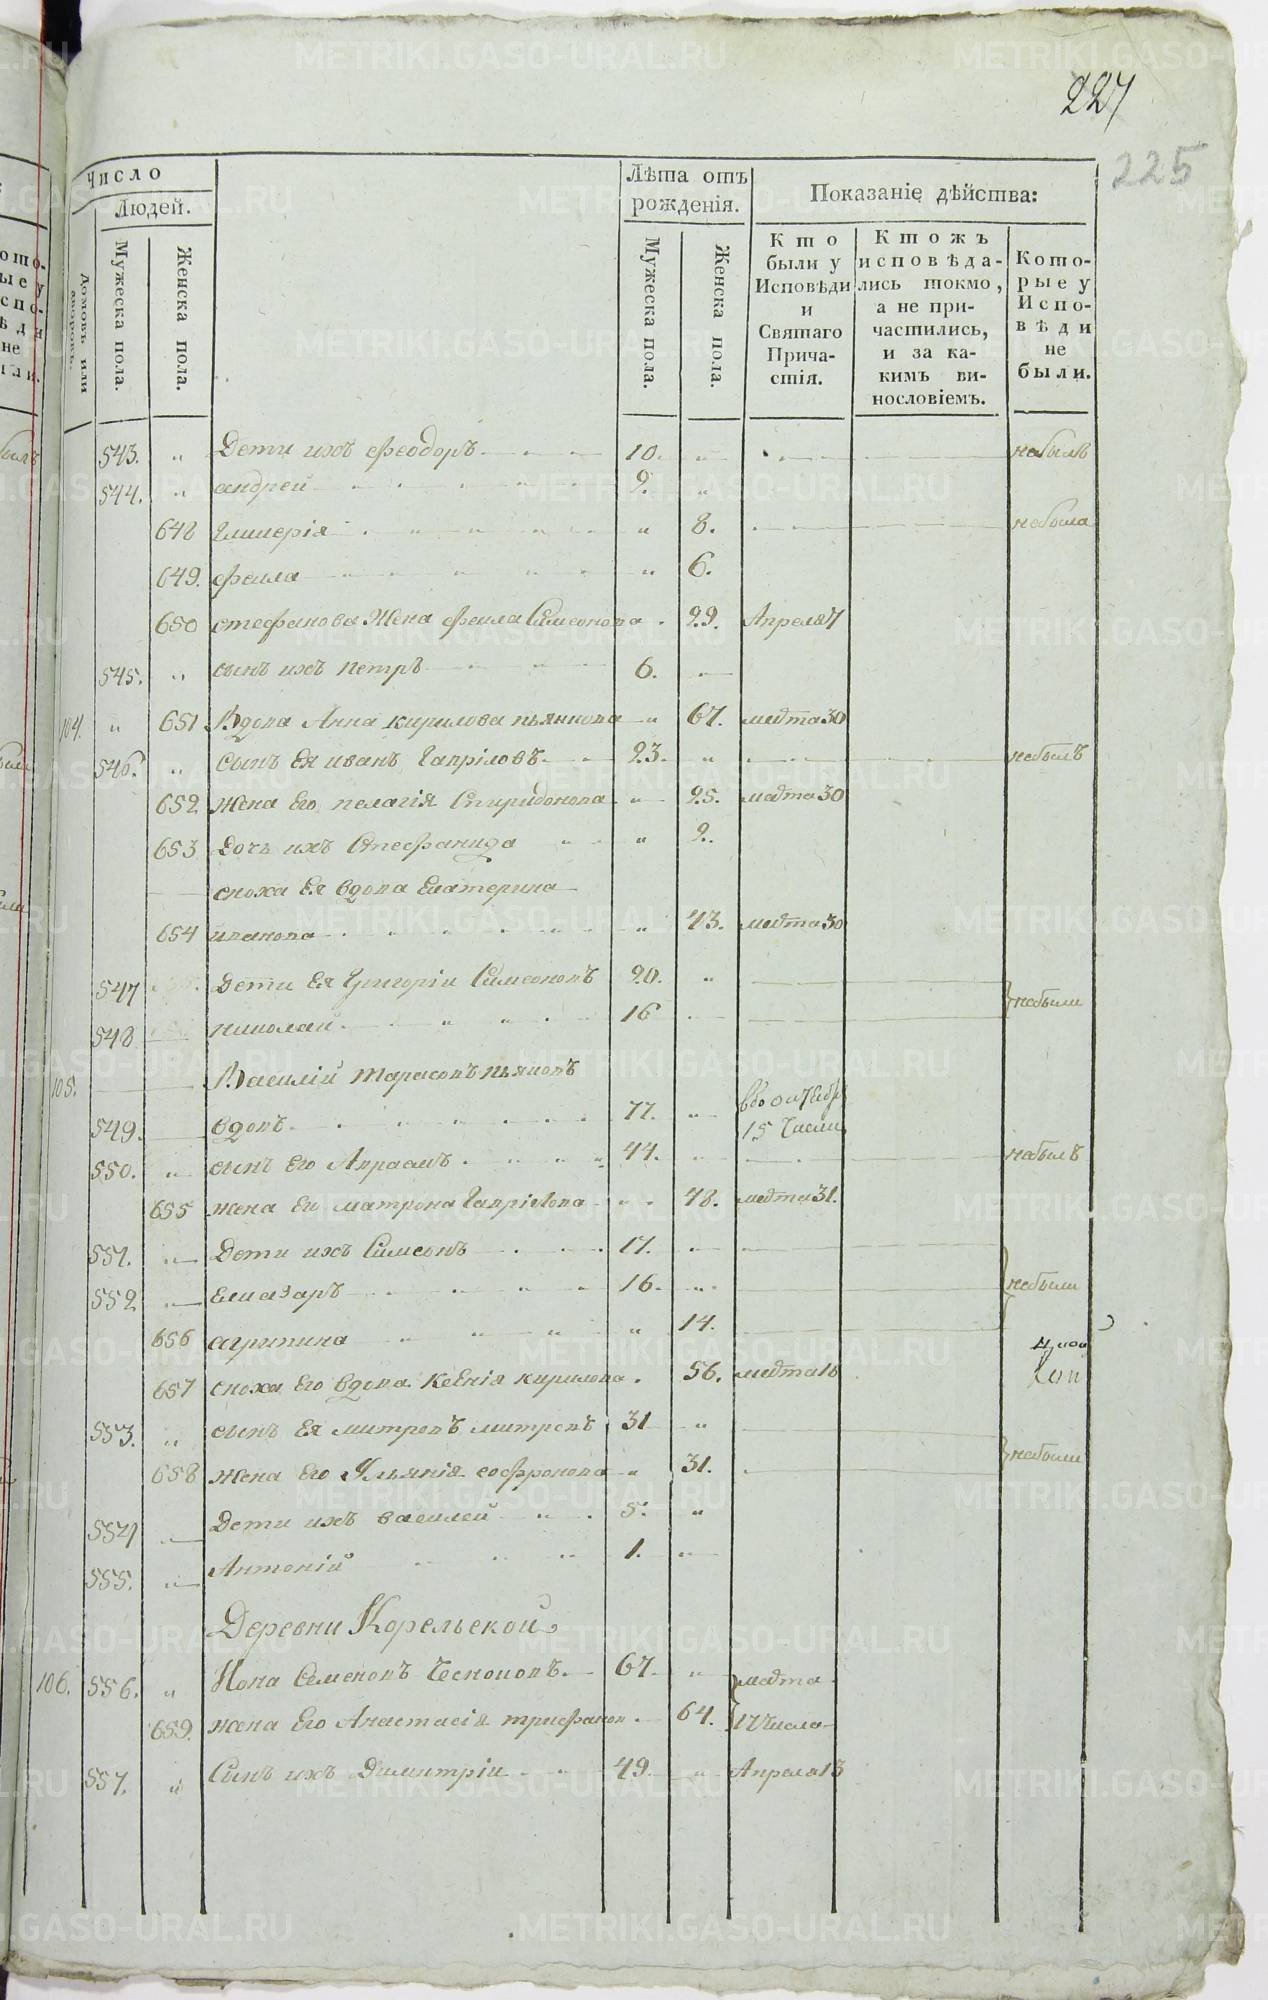 227
225
Число
Людей.
Домовъ или дворовъ.
Мужеска пола.
Женска пола.
Лѣта отъ рожденія.
Мужеска пола.
Женска пола.
Показаніе дѣйства:
Кто были у Исповѣди и Святаго Причастія.
Ктожъ исповѣдались токмо, а не причастились, и за какимъ винословіемъ.
Которые у Исповѣди не были.
543. " Дети ихъ Феодоръ 10. " небылъ
544. " андрей 9. "
648 Гликерія " 8. небыла
649. Фекла " 6.
650 стефанова жена Фекла Симеонова . 29. Апреля 7
545. " сынъ ихъ петръ 6.
104. " 651 Вдова Анна кирилова пьянкова " 67. марта 30
546. " сынъ Ея иванъ Гаврiловъ 23. " небылъ
652 жена Его пелагія Спиридонова " 25. марта 30
653 дочь ихъ Стефанида " 2.
сноха Ея вдова Екатерина
654 иванова " 43. марта 30
547 Дети Ея Григорiи Симеоновъ 20. " небыли
548 николай 16
105. Василій тарасовъ пьянковъ
549. вдовъ 77. " 15 Числа
550. " сынъ Его Авраамъ 44. " небылъ
655 жена Его матрона Гаврiлова " 48. марта 31.
551. " Дети ихъ Симеонъ 17. "
552 " Елиазаръ 16. " небыли
656 агрипина " 14.
657 сноха Его вдова Ксенія кирилова . 56. марта 16
553. " сынъ Ея митровъ 31 "
658 жена Его Ульянія софронова " 31. небыли
554 Дети ихъ василей 5. "
555. " Антоній 1. "
Деревни Корельской
106. 556. " Иона Семеновъ Чесноковъ. 67. " марта
659. жена Его Анастасія трифанов . 64. 17 Числа
557. " Сынъ ихъ Димитріи 49. " Апреля 13
METRIKI.GASO-URAL.RU